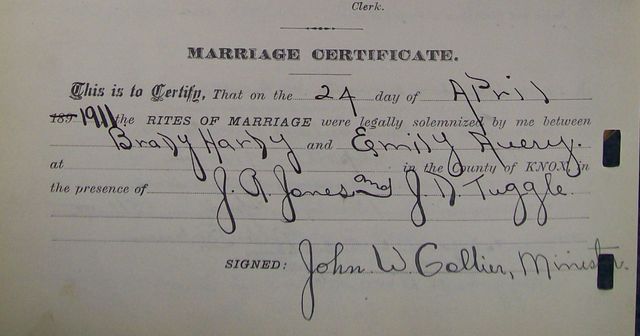 Clerk.
MARRIAGE CERTIFICATE.
This is to Certify, That on the 24 day of April
189 1911 the RITES OF MARRIAGE were legally solemnized by me between
Brady Hardy and Emily Avery.
at in the County of KNOX, in
the presence of J. A. Jones and J. D. Tuggle.
SIGNED: John W. Collier, Minister.